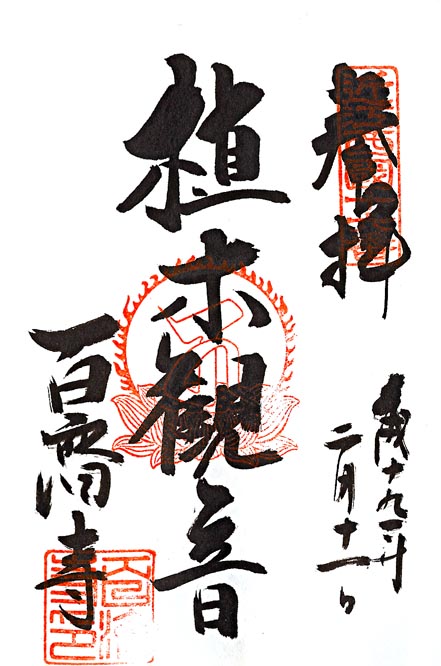 奉拝
平成十九年
二月十一日
植木観音
百濟寺